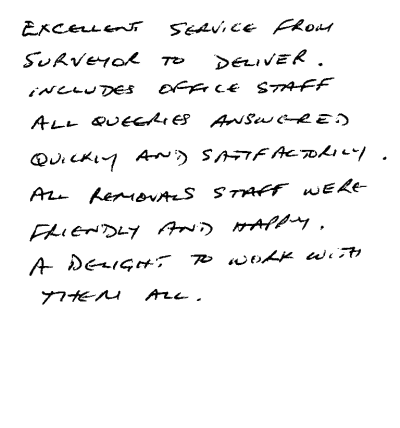 EXCELLENT SERVICE FROM
SURVEYOR TO DELIVER.
INCLUDES OFFICE STAFF
ALL QUEERIES ANSWERED
QUICKLY AND SATIFACTORILY.
ALL REMOVALS STAFF WERE
FRIENDLY AND HAPPY.
A DELIGHT TO WORK WITH
THEM ALL.